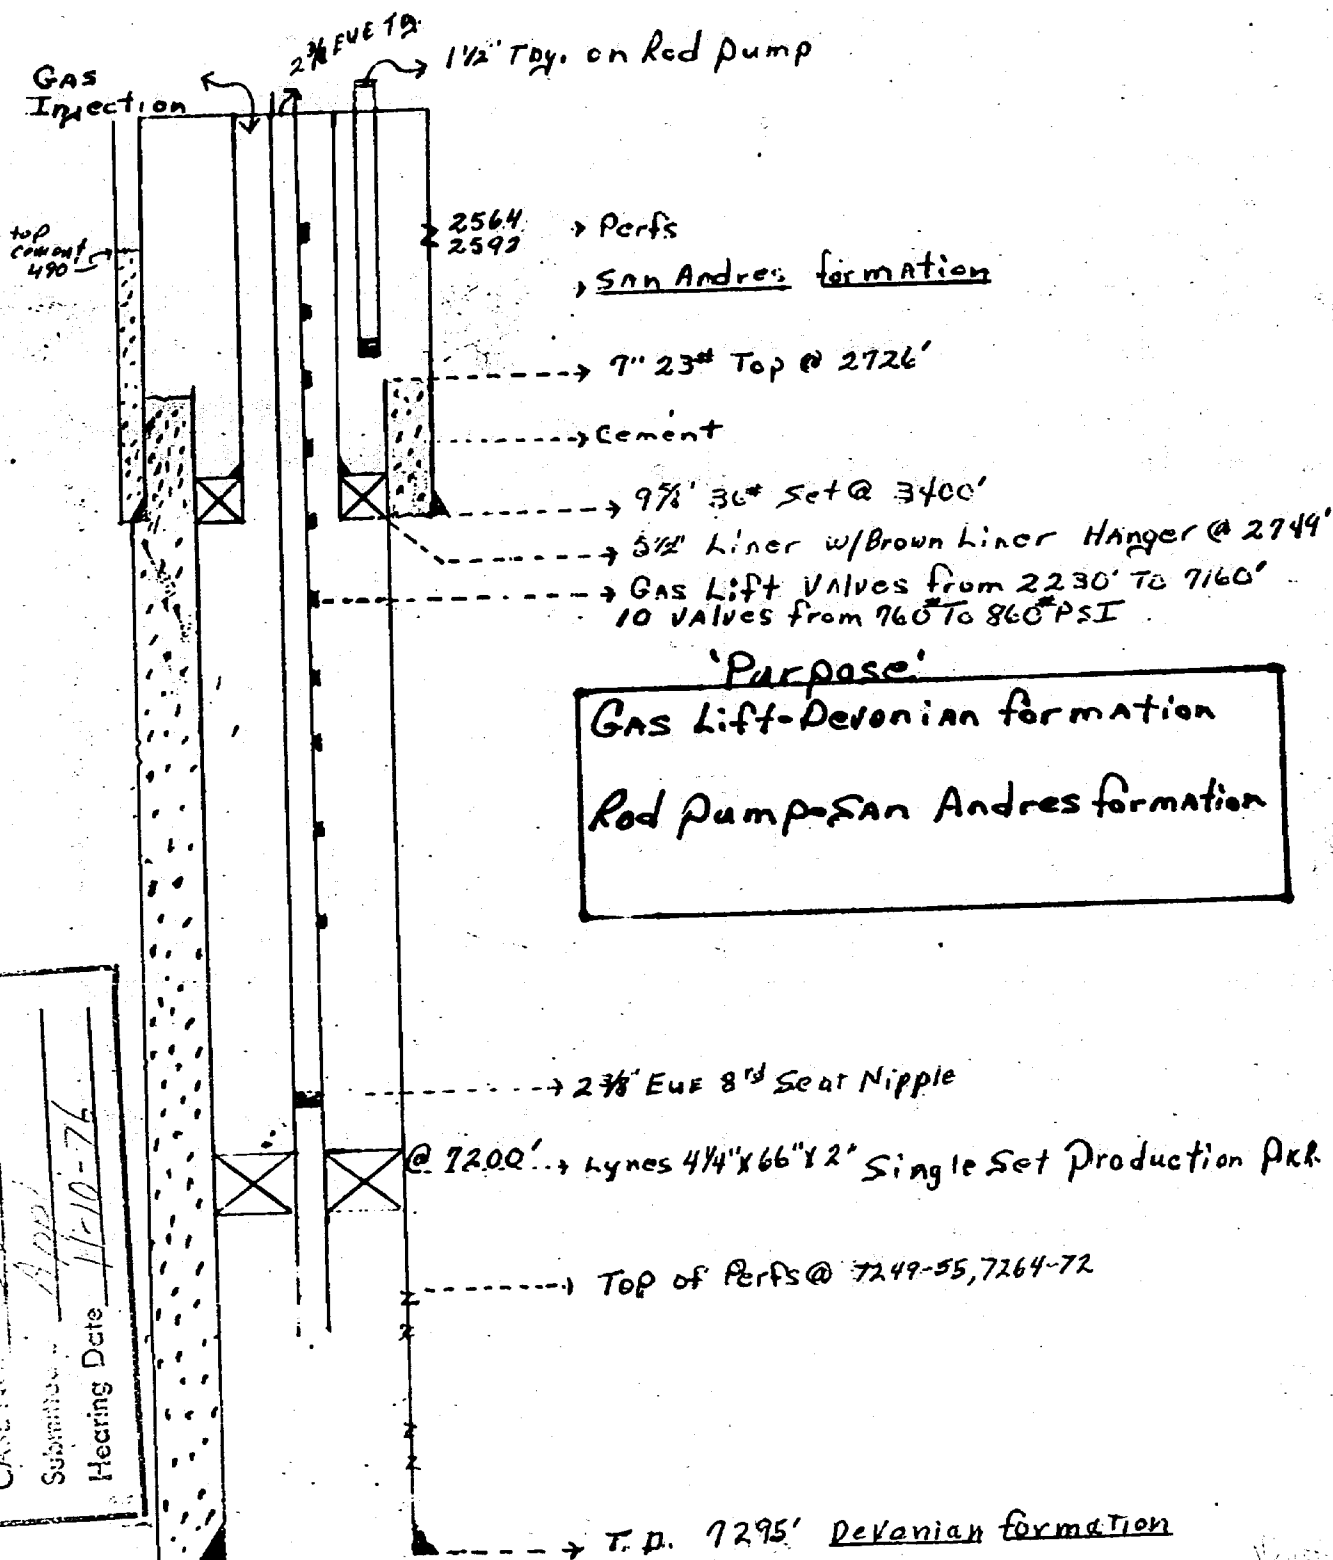 2 3/8 EUE TG.
1 1/2" Tbg. on Rod Pump
GAS
Injection
top
cement
490
2564
2592
Perfs
SAn Andres formAtion
7" 23# Top @ 2726'
Cement
9 5/8" 36# Set @ 3400'
5 1/2" Liner w/Brown Liner HAnger @ 2749'
GAs Lift VAlves from 2230' To 7160'
10 VAlves from 760# To 860# PSI
'Purpose'
GAs Lift-DevoniAn formAtion
Rod Pump-SAn Andres formAtion
2 3/8" EuE 8rd Seat Nipple
@ 7200' Lynes 4 1/4" X 66" X 2" Single Set Production PKR
Top of Perfs @ 7249-55, 7264-72
T.D. 7295' DeVonian formation
Hearing Date 11-10-76